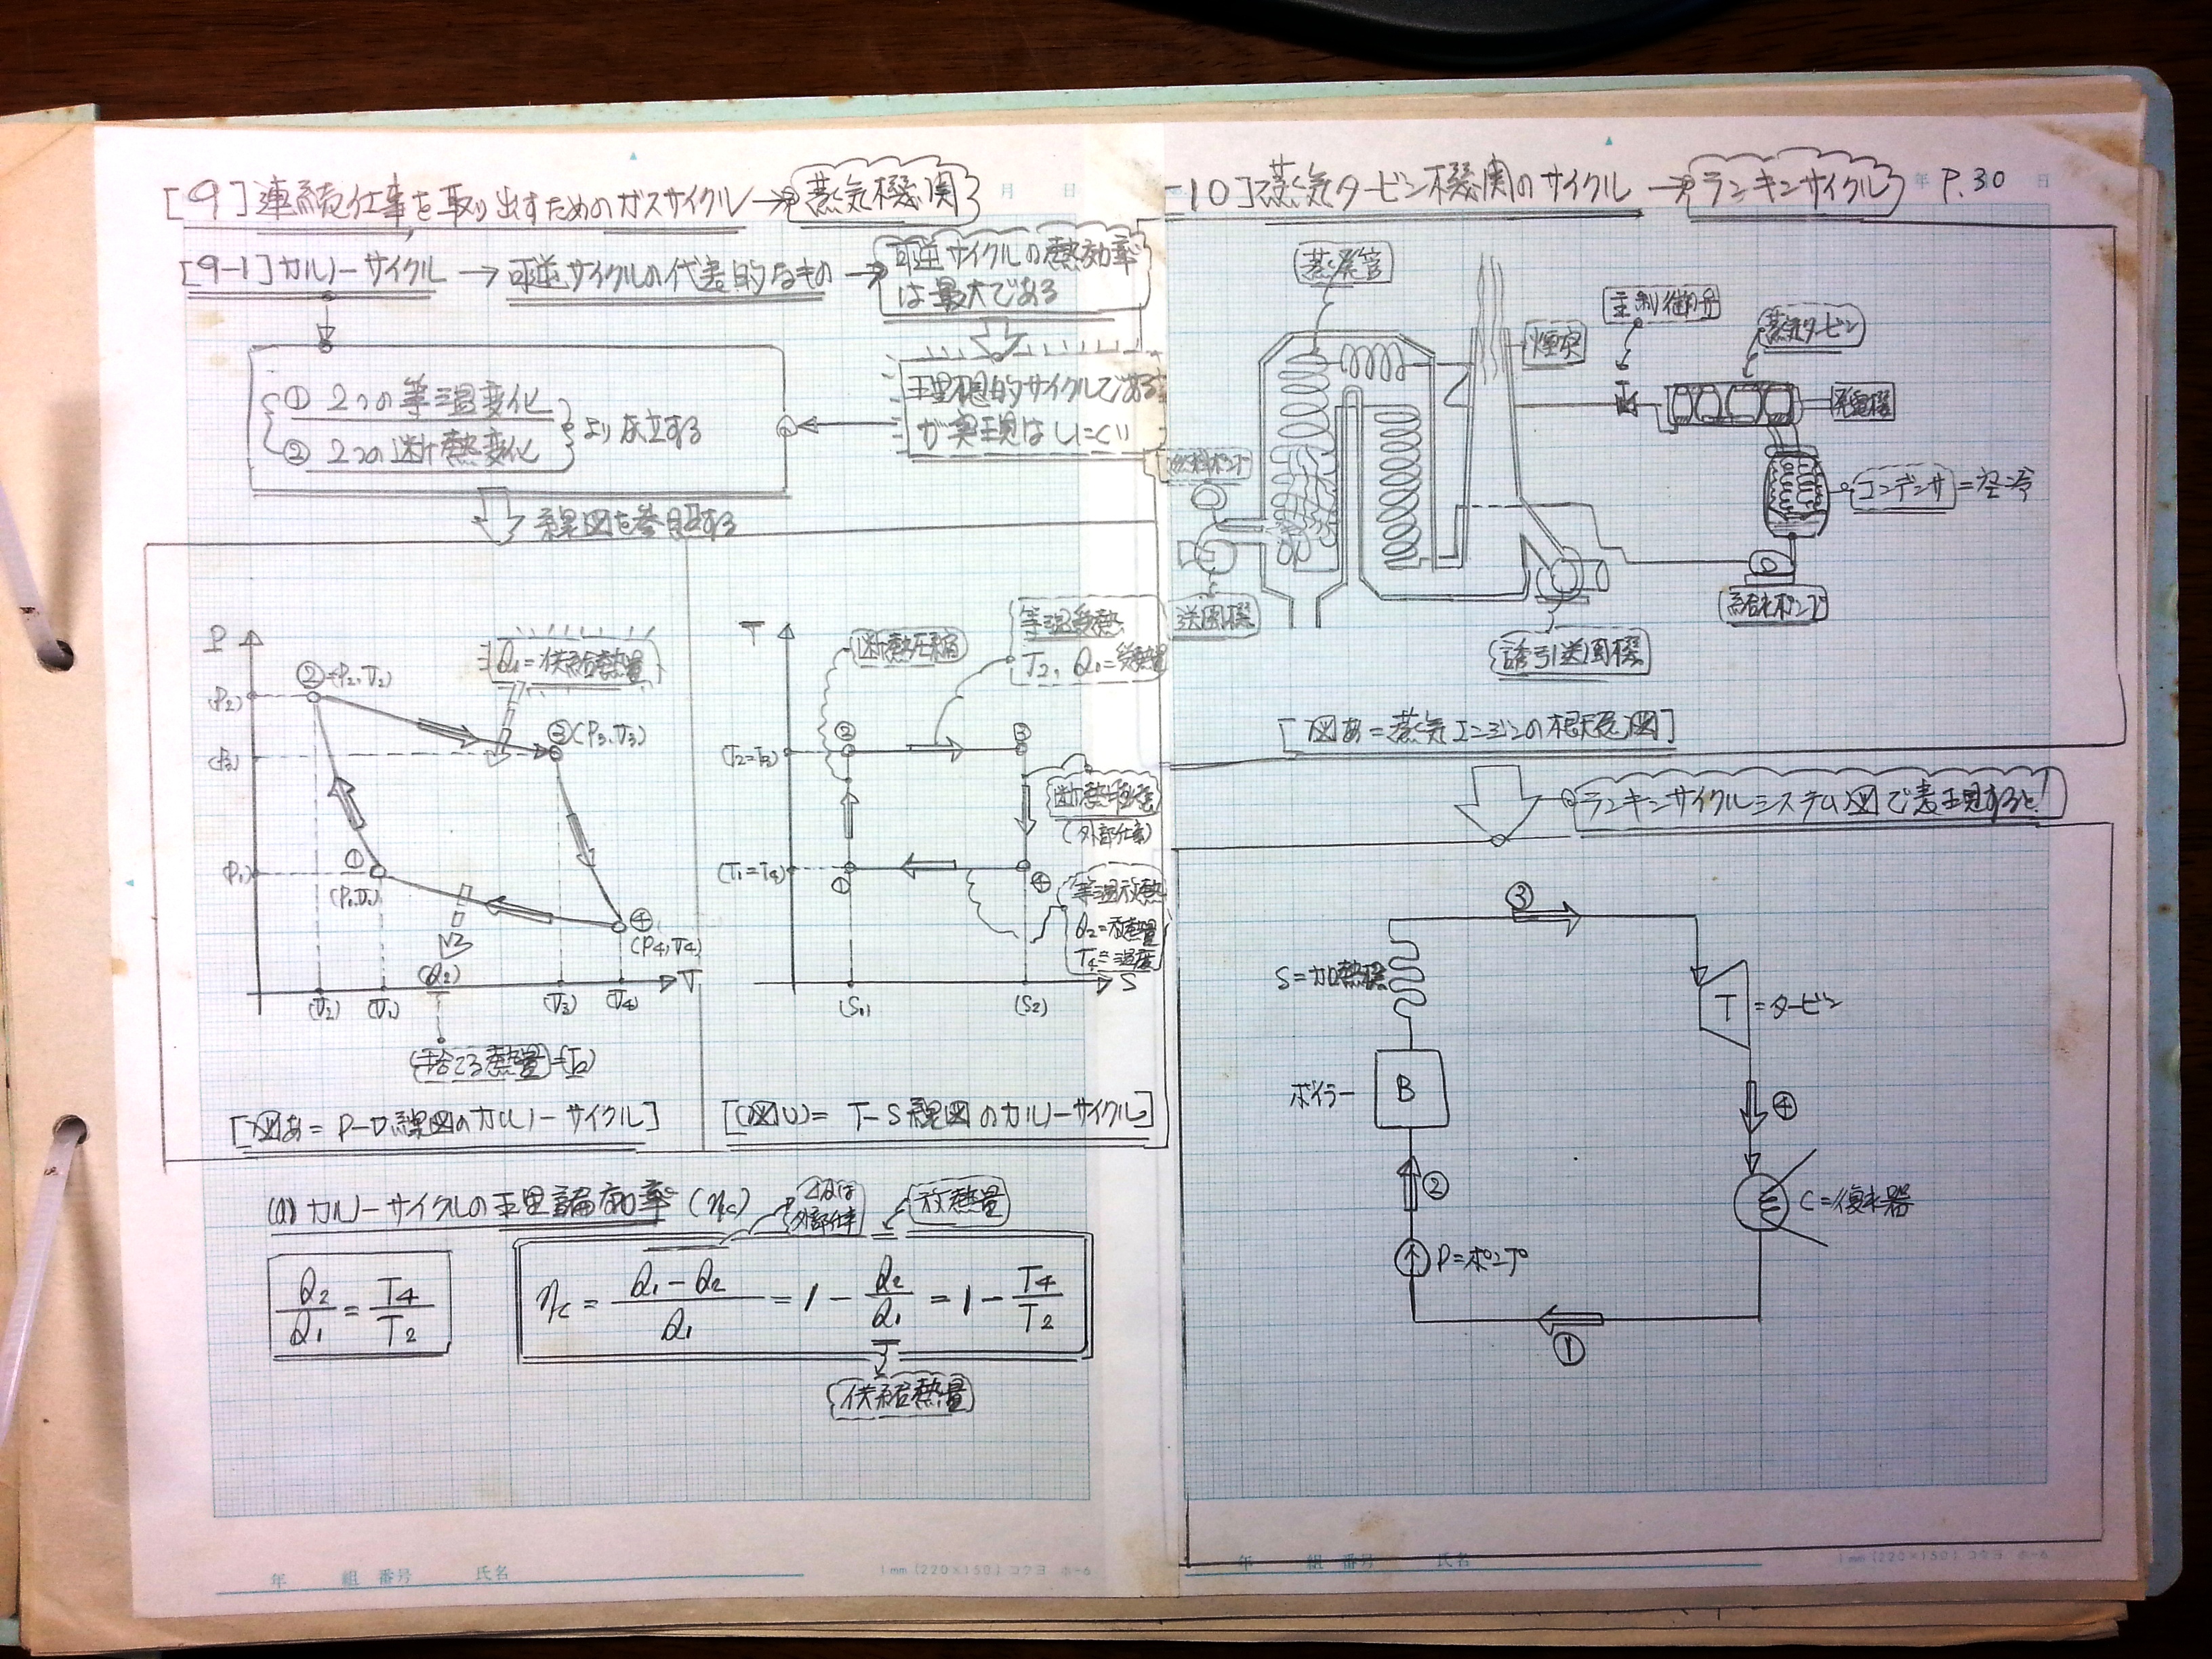 [9]連続仕事を取り出すためのガスサイクル→蒸気機関
月 日
[9-1]カルノーサイクル→可逆サイクルの代表的なもの→可逆サイクルの熱効率
は最大である
理想的サイクルである
が実現はしにくい
① 2つの等温変化
② 2つの断熱変化
より成立する
線図を参照する
P
②=(P2,V2)
Q1=供給熱量
(P2)
③(P3,V3)
(P3)
①
(P1)
(P1,V1)
④
(P4,V4)
(Q2)
V
(V2) (V1) (V3) (V4)
捨てる熱量
[図あ=P-V線図のカルノーサイクル]
T
断熱圧縮
等温受熱
T2, Q1=受熱量
② ③
(T2=T3)
断熱膨張
(外部仕事)
(T1=T4)
① ④
等温放熱
Q2=放熱量
T4=温度
S
(S1) (S2)
[(図い)=T-S線図のカルノーサイクル]
(a)カルノーサイクルの理論効率(ηc)
外部仕事
放熱量
Q2/Q1=T4/T2
ηc=(Q1-Q2)/Q1=1-Q2/Q1=1-T4/T2
供給熱量
年 組 番号 氏名
1mm(220×150)コクヨ ホ-6
10]蒸気タービン機関のサイクル→ランキンサイクル
年 P.30 日
蒸発管
煙突
主制御弁
蒸気タービン
発電機
燃料ポンプ
コンデンサ=空冷
送風機
給水ポンプ
誘引送風機
[図あ=蒸気エンジンの根本図]
ランキンサイクルシステム図で表現すると!
③
S=加熱器
T=タービン
ボイラー B
④
②
C=復水器
P=ポンプ
①
年 組 番号 氏名
1mm(220×150)コクヨ ホ-6